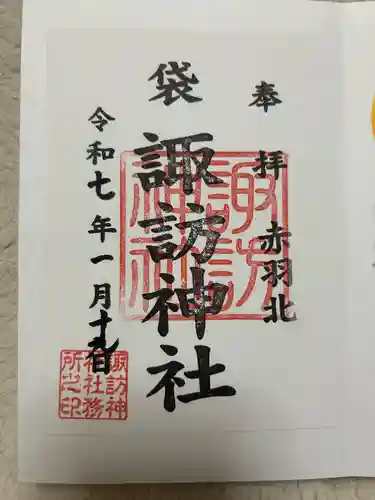 奉拝 赤羽北
袋 諏訪神社
令和七年一月十九日
諏訪神社
諏訪神社務所之印